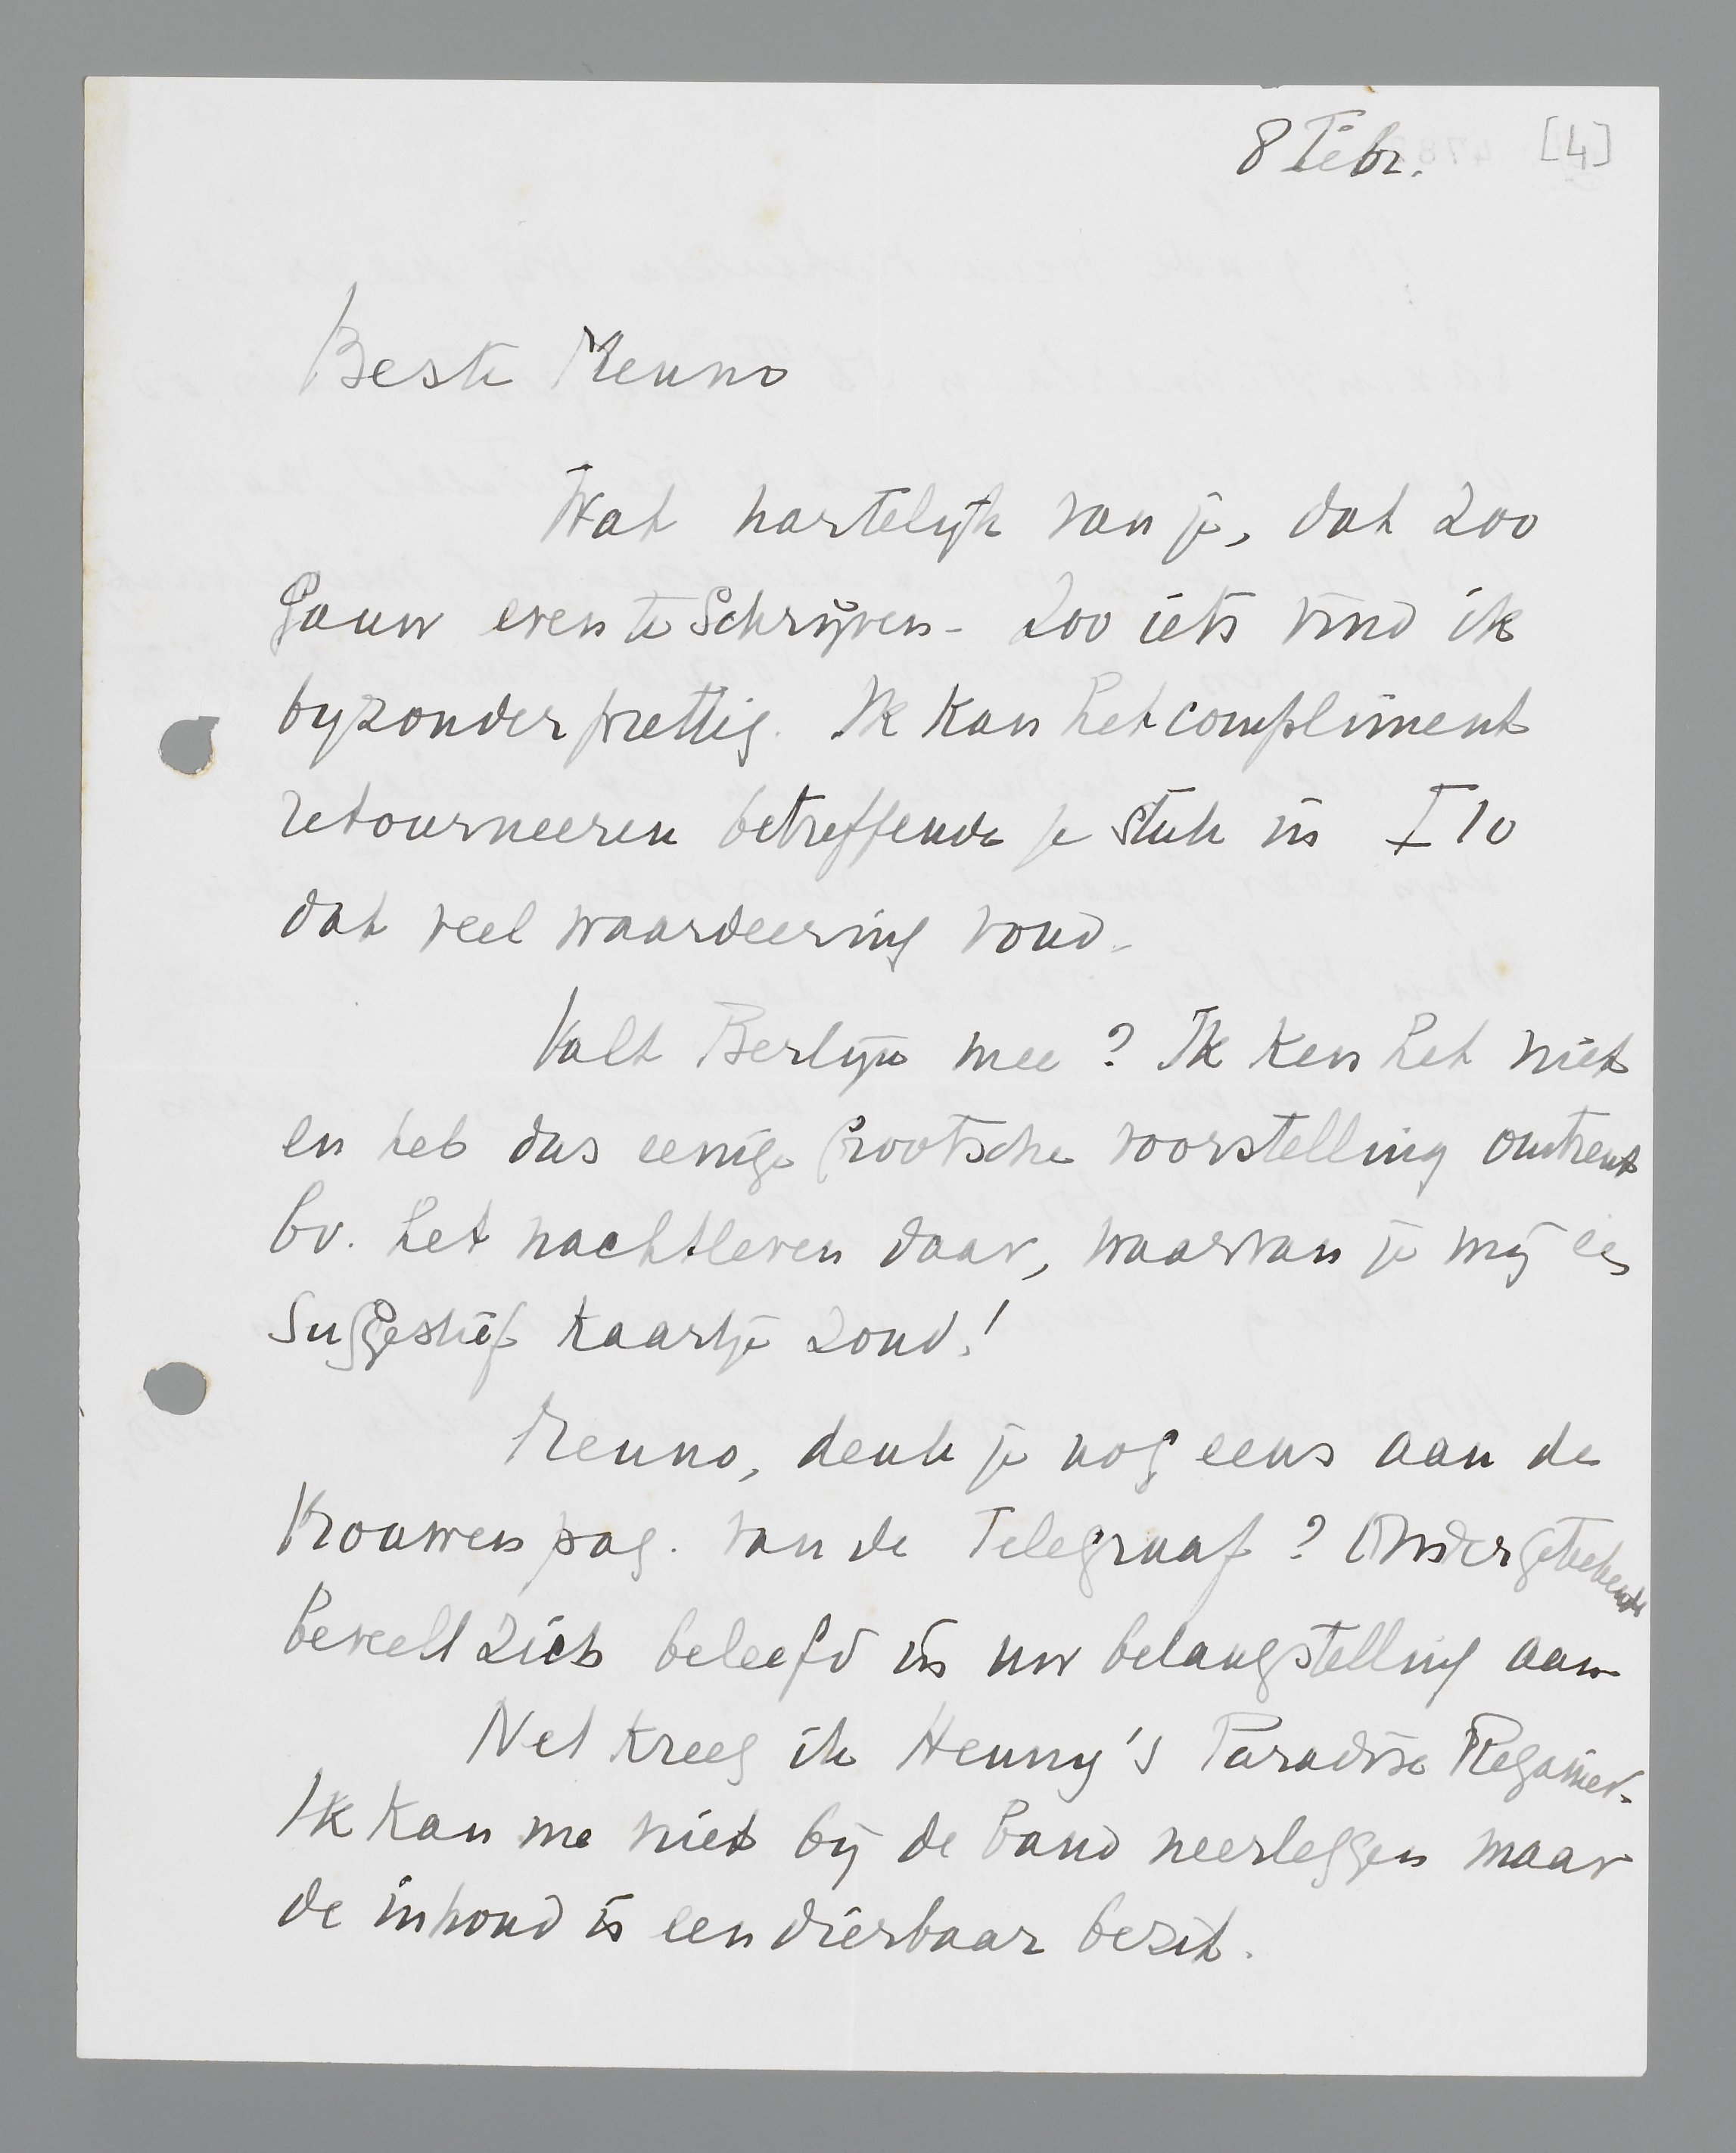 8 Febr. [4]
Beste Menno
Wat hartelijk van je, dat zoo
gauw even te schrijven - Zoo iets vind ik
byzonder prettig. Ik kan het compliment
retourneeren betreffende je stuk in I 10
dat veel waardeering vond.
Valt Berlijn mee? Ik ken het niet
en heb dus eenige grootsche voorstelling omtrent
bv. het nachtleven daar, waarvan je mij een
suggestief kaartje zond!
Menno, denk je nog eens aan de
Vrouwen pag. van de Telegraaf? Ondergeteekende
beveelt zich beleefd in uw belangstelling aan
Net kreeg ik Henny's Paradise Regained.
Ik kan me niet bij de band neerleggen maar
de inhoud is een dierbaar bezit.